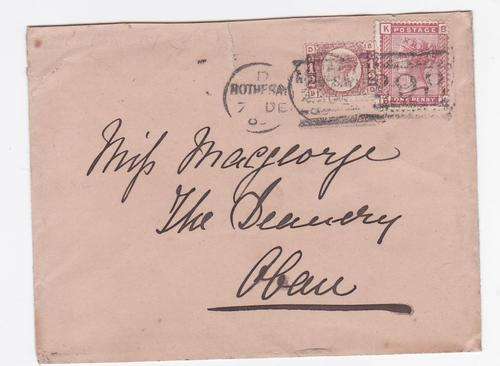 D
ROTHESAY
7 DE
POSTAGE
ONE PENNY
Miss Macgeorge
The Deanery
Oban